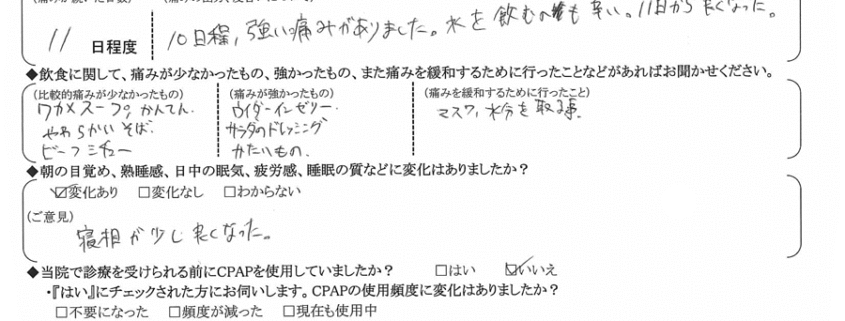 11 日程度
10日程,強い痛みがありました。水を飲むのも辛い。11日から良くなった。
◆飲食に関して、痛みが少なかったもの、強かったもの、また痛みを緩和するために行ったことなどがあればお聞かせください。
(比較的痛みが少なかったもの) (痛みが強かったもの) (痛みを緩和するために行ったこと)
ワカメスープ, かんてん. ウイダーインゼリー. マスク, 水分を取る事.
やわらかいそば. サラダのドレッシング
ビーフシチュー かたいもの.
◆朝の目覚め、熟睡感、日中の眠気、疲労感、睡眠の質などに変化はありましたか？
☑変化あり □変化なし □わからない
(ご意見)
寝相が少し良くなった。
◆当院で診療を受けられる前にCPAPを使用していましたか？ □はい ☑いいえ
・『はい』にチェックされた方にお伺いします。CPAPの使用頻度に変化はありましたか？
□不要になった □頻度が減った □現在も使用中